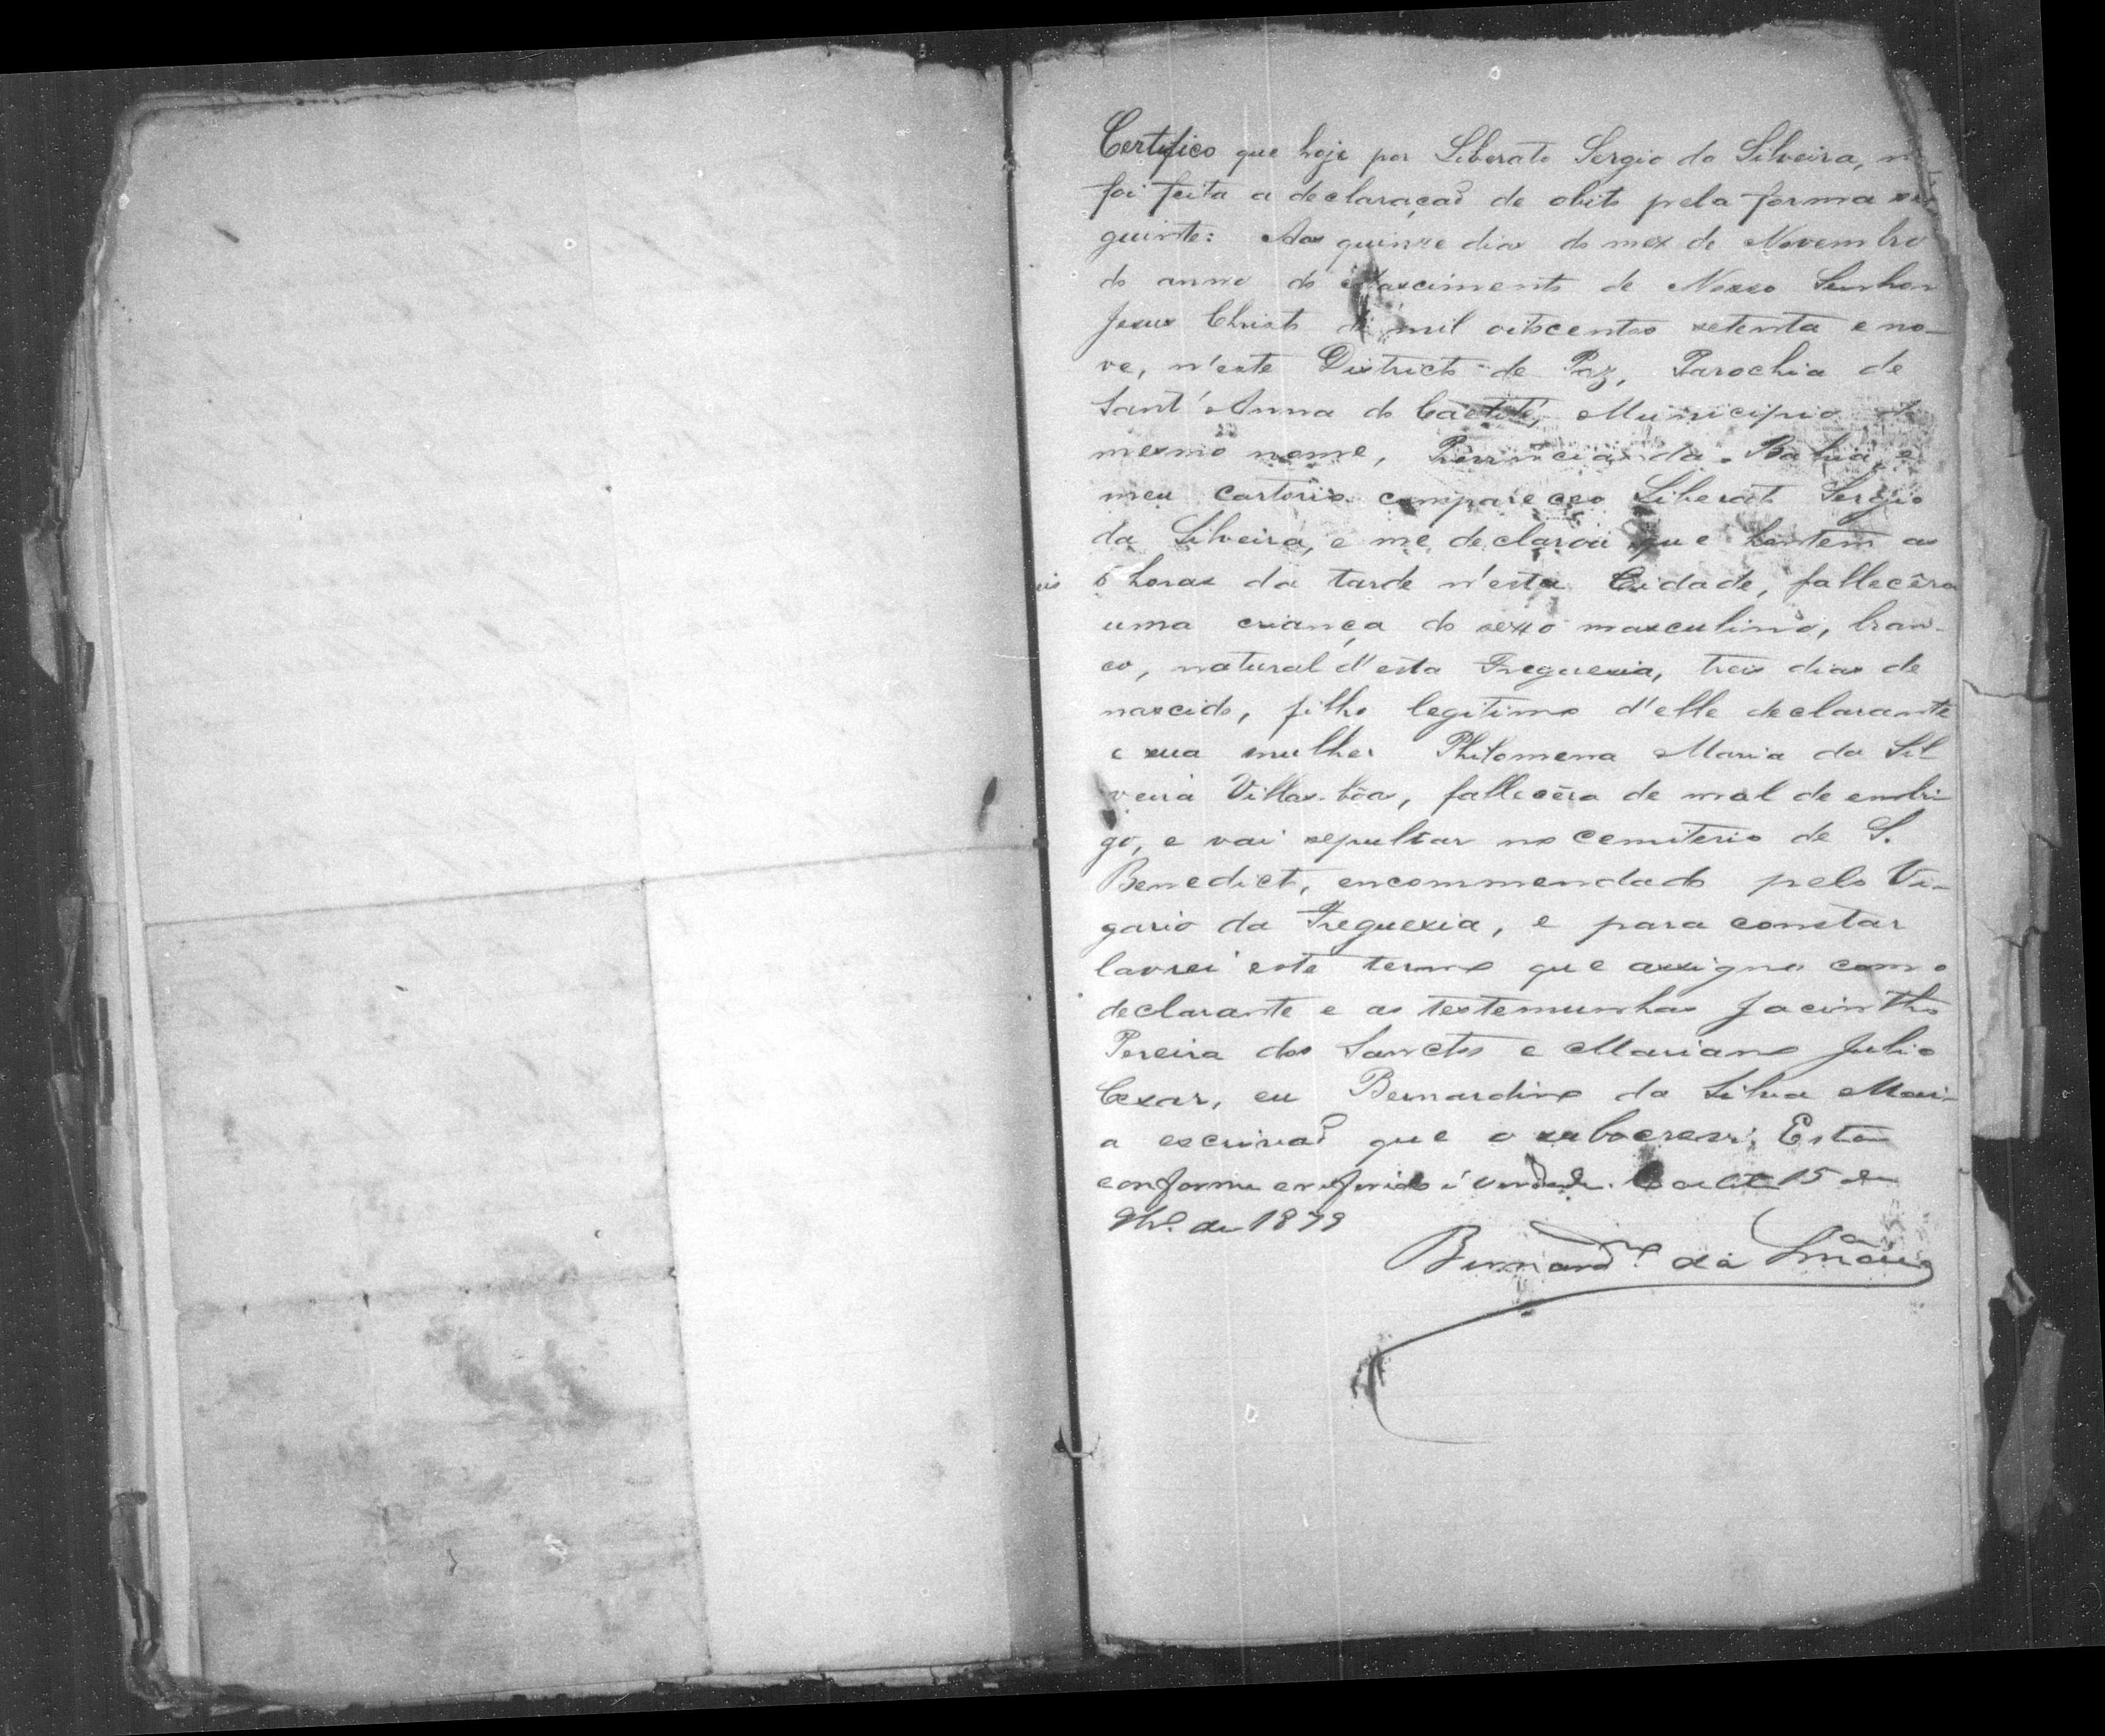 Certifico que hoje por Liberato Sergio da Silveira, m
foi feita a declaração de obito pela forma se
guinte: Aos quinze dias do mez de Novembro
do anno do Nascimento de Nosso Senhor
Jesus Christo de mil oitocentos setenta e no-
ve, n'este Districto de Paz, Parochia de
Sant'Anna do Caetité, Municipio do
mesmo nome, Provincia da Bahia, e
meu cartorio compareceo Liberato Sergio
da Silveira, e me declarou que hontem as
6 horas da tarde n'esta Cidade, fallecêra
uma criança do sexo masculino, bran-
co, natural d'esta Freguesia, tres dias de
nascido, filho legitimo d'elle declarante
e sua mulher Philomena Maria da Sil
veira Villas-bôas, fallecêra de mal de embi-
go, e vai sepultar no cemiterio de S.
Benedicto, encommendado pelo Vi-
gario da Freguesia, e para constar
lavrei este termo que assigno com o
declarante e as testemunhas Jacintho
Pereira dos Sanctos e Mariano Julio
Cezar, eu Bernardino da Silva Mari-
a escrivaõ que o subscrevi. Está
conforme o referido é verdade. Caetité 15 de
9bro. de 1879
Bernardno. da Sa Maria